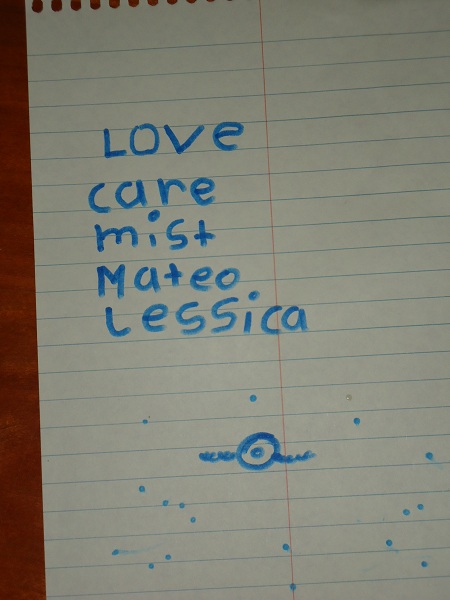 Love
care
mist
Mateo
Lessica